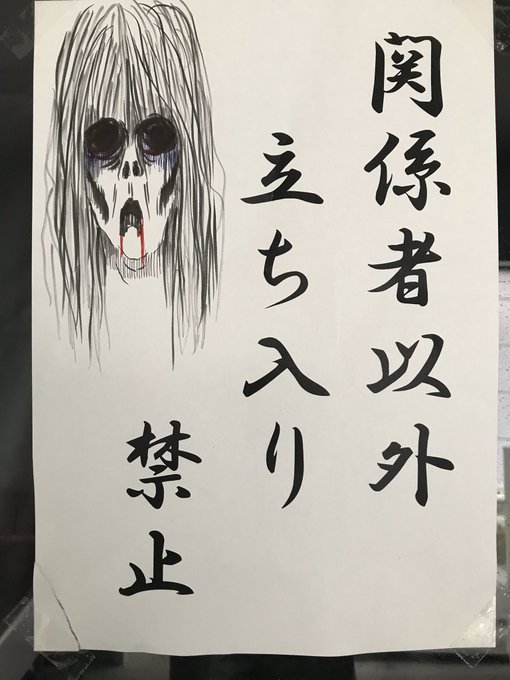 関係者以外
立ち入り
禁止